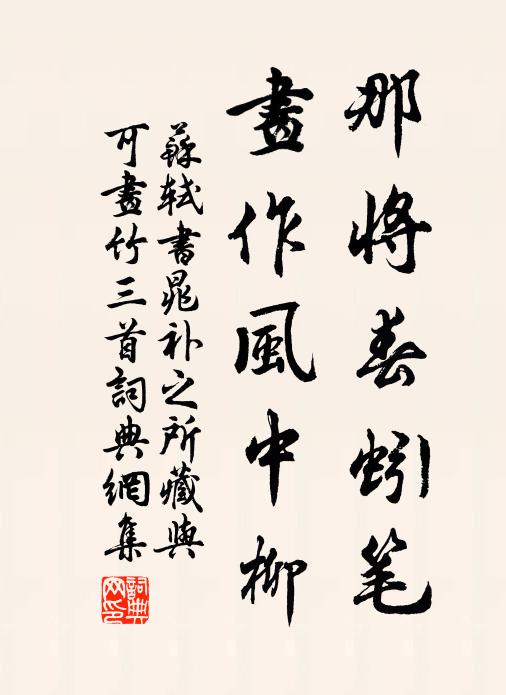 那將春蚓笔
畫作風中柳
蘇轼書晁补之所藏與
可畫竹三首詞典網集
詞典网印